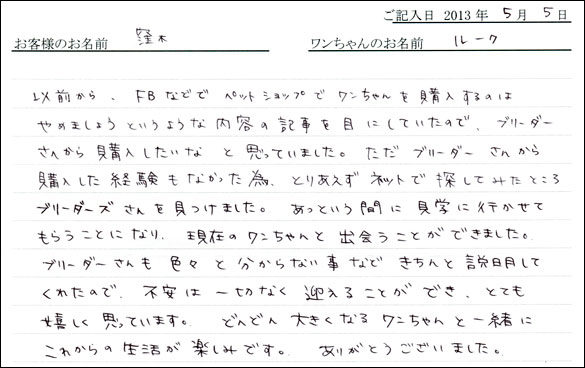 ご記入日 2013 年 5 月 5 日
お客様のお名前 窪木 ワンちゃんのお名前 ルーク
以前から、FBなどで ペットショップで ワンちゃんを購入するのは
やめましょうというような内容の記事を目にしていたので、ブリーダー
さんから購入したいな と思っていました。ただ ブリーダー さんから
購入した経験もなかった為、とりあえず ネットで 探してみたところ
ブリーダーズさんを見つけました。 あっという間に 見学に行かせて
もらうことになり、現在のワンちゃんと 出会うことができました。
ブリーダーさんも 色々と 分からない事など きちんと 説明して
くれたので、不安は 一切なく 迎えることができ、とても
嬉しく思っています。 どんどん 大きくなる ワンちゃんと一緒に
これからの生活が 楽しみです。 ありがとうございました。